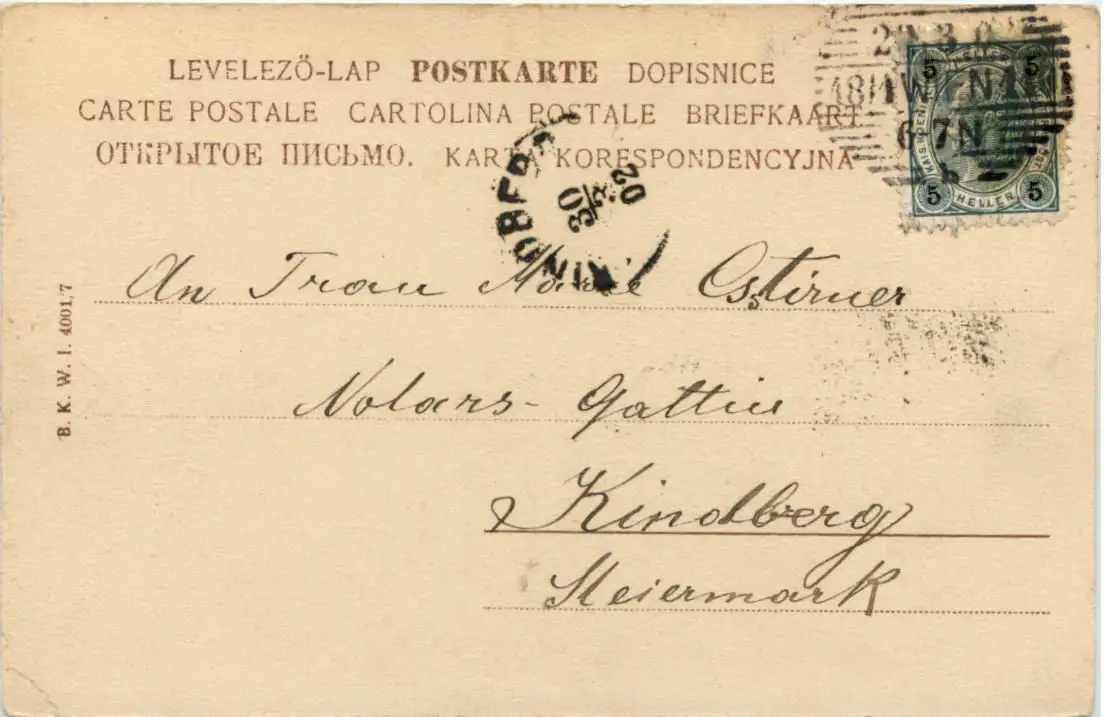 LEVELEZŐ-LAP POSTKARTE DOPISNICE
CARTE POSTALE CARTOLINA POSTALE BRIEFKAART
ОТКРЫТОЕ ПИСЬМО. KARTA KORESPONDENCYJNA
5 HELLER 5
6-7N
KINDBERG
30
3
02
An Frau Marie
Notars-Gattin
Kindberg
Steiermark
B. K. W. I. 4001/7